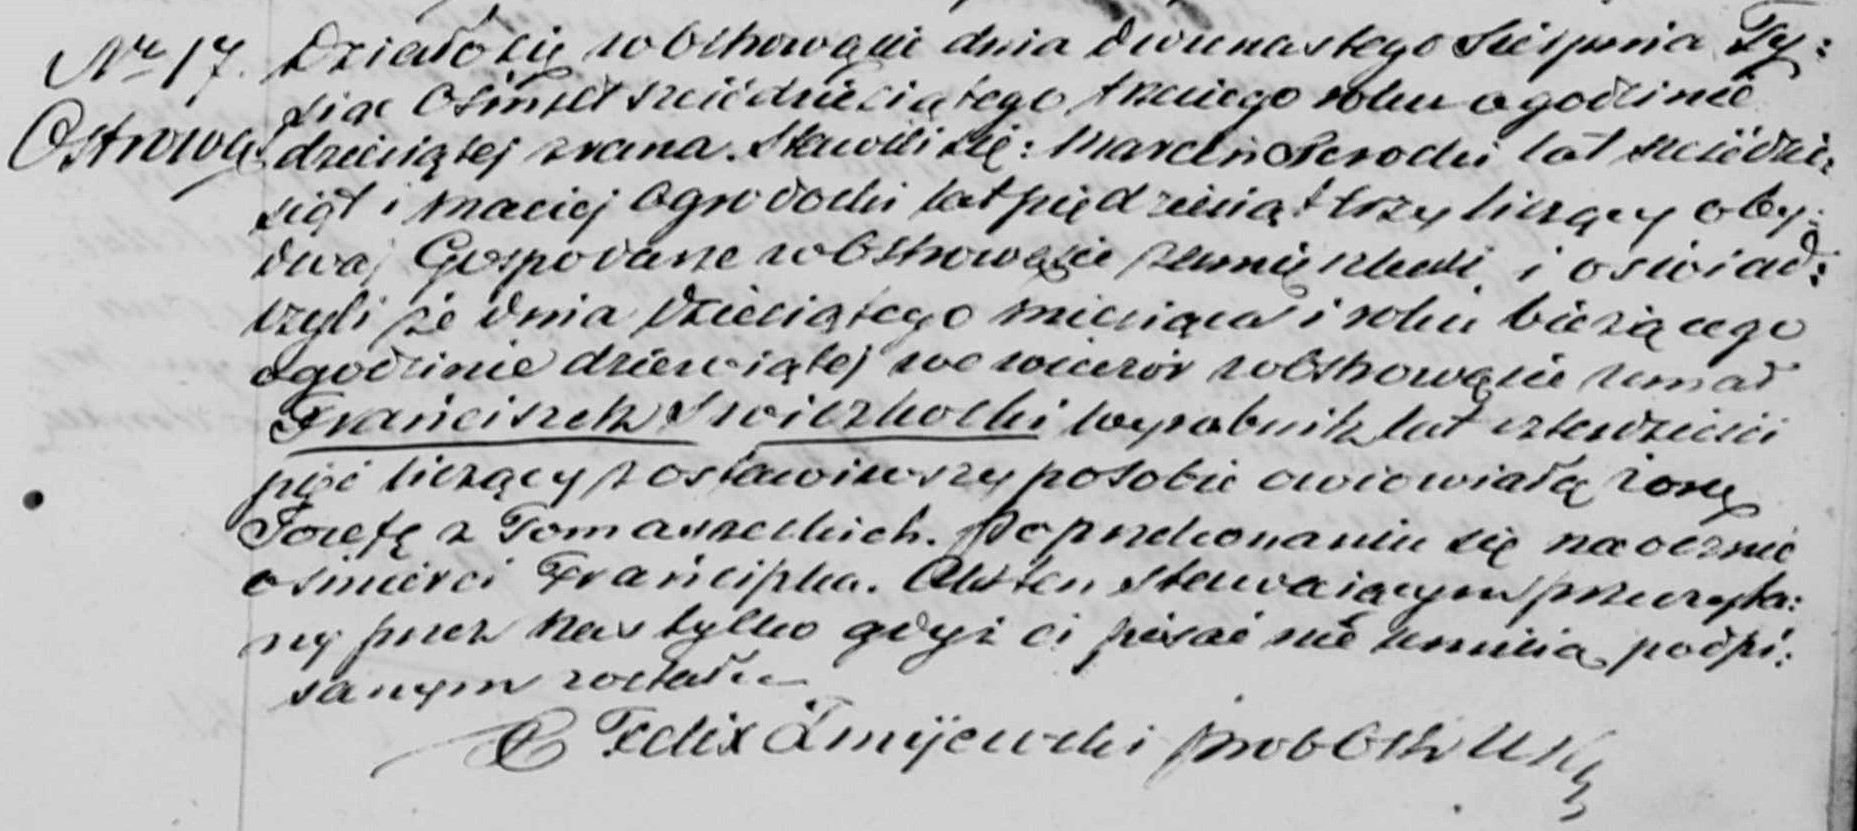 Nr 17. Działo się w Ostrowąsie dnia dwunastego Sierpnia Ty:
siąc Ośmset sześćdziesiątego trzeciego roku o godzinie
Ostrowąs. dziesiątej zrana. Stawili się: Marcin lat sześdzie:
siąt i Maciej Ogrodocki lat piędziesiąt trzy liczący oby:
dwaj Gospodarze w Ostrowąsie zamięszkali i oswiad:
czyli że dnia dziesiątego miesiąca i roku bieżącego
o godzinie dziewiątej we wieczór w Ostrowąsie umarł
Franciszek Swieczkocki wyrobnik lat czterdzieści
pięć liczący zostawiwszy po sobie owdowiałą żonę
Jozefę z Tomaszeskich. Po przekonaniu się naocznie
o śmierci Franciszka. Akt ten stawaiącym przeczyta:
ny przez Nas tylko gdyż ci pisać nie umieią podpi:
sanym został.
X Felix Żmijewski prob Ostr U S C